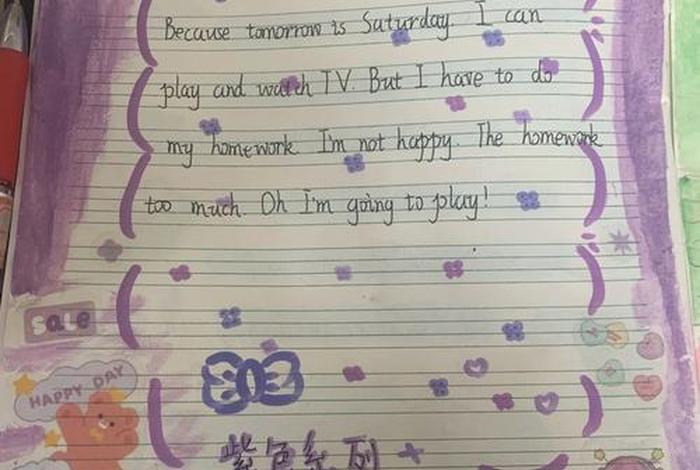 Because tomorrow is Saturday. I can
play and watch TV. But I have to do
my homework. I'm not happy. The homework
too much. Oh I'm going to play!
SALE
HAPPY DAY
紫色系列